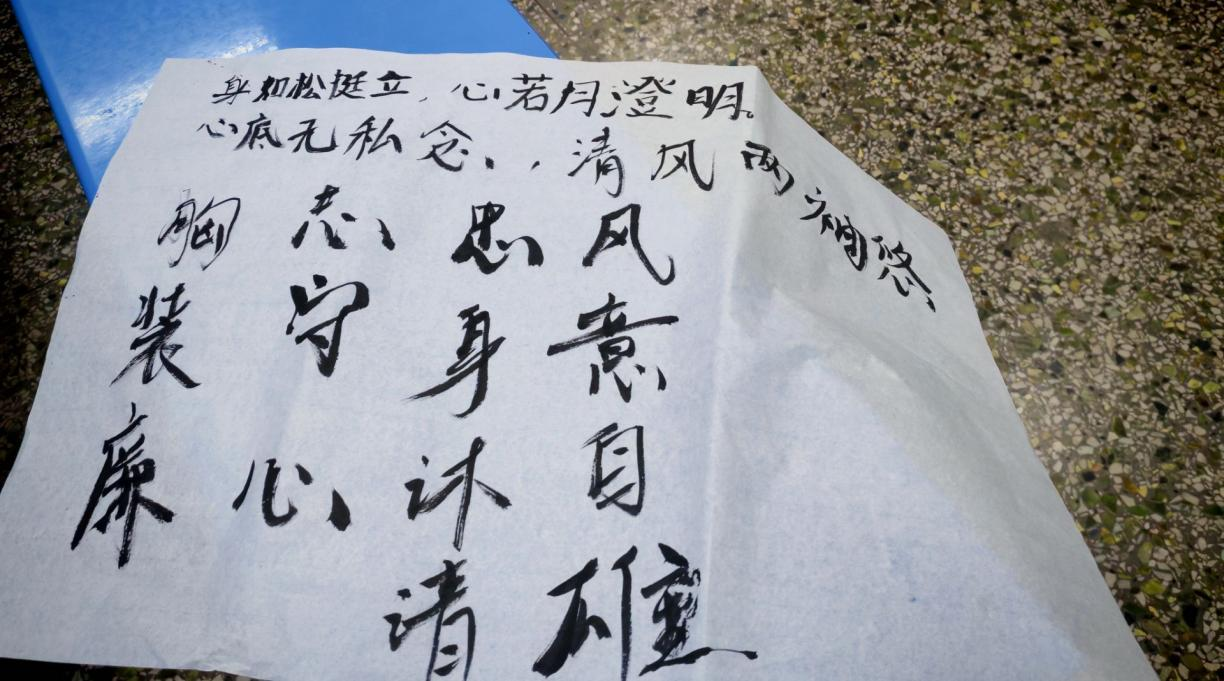 身如松挺立，心若月澄明。
心底无私念，，清风两袖悠
胸装廉
志守心
忠身沐清
风意自雄